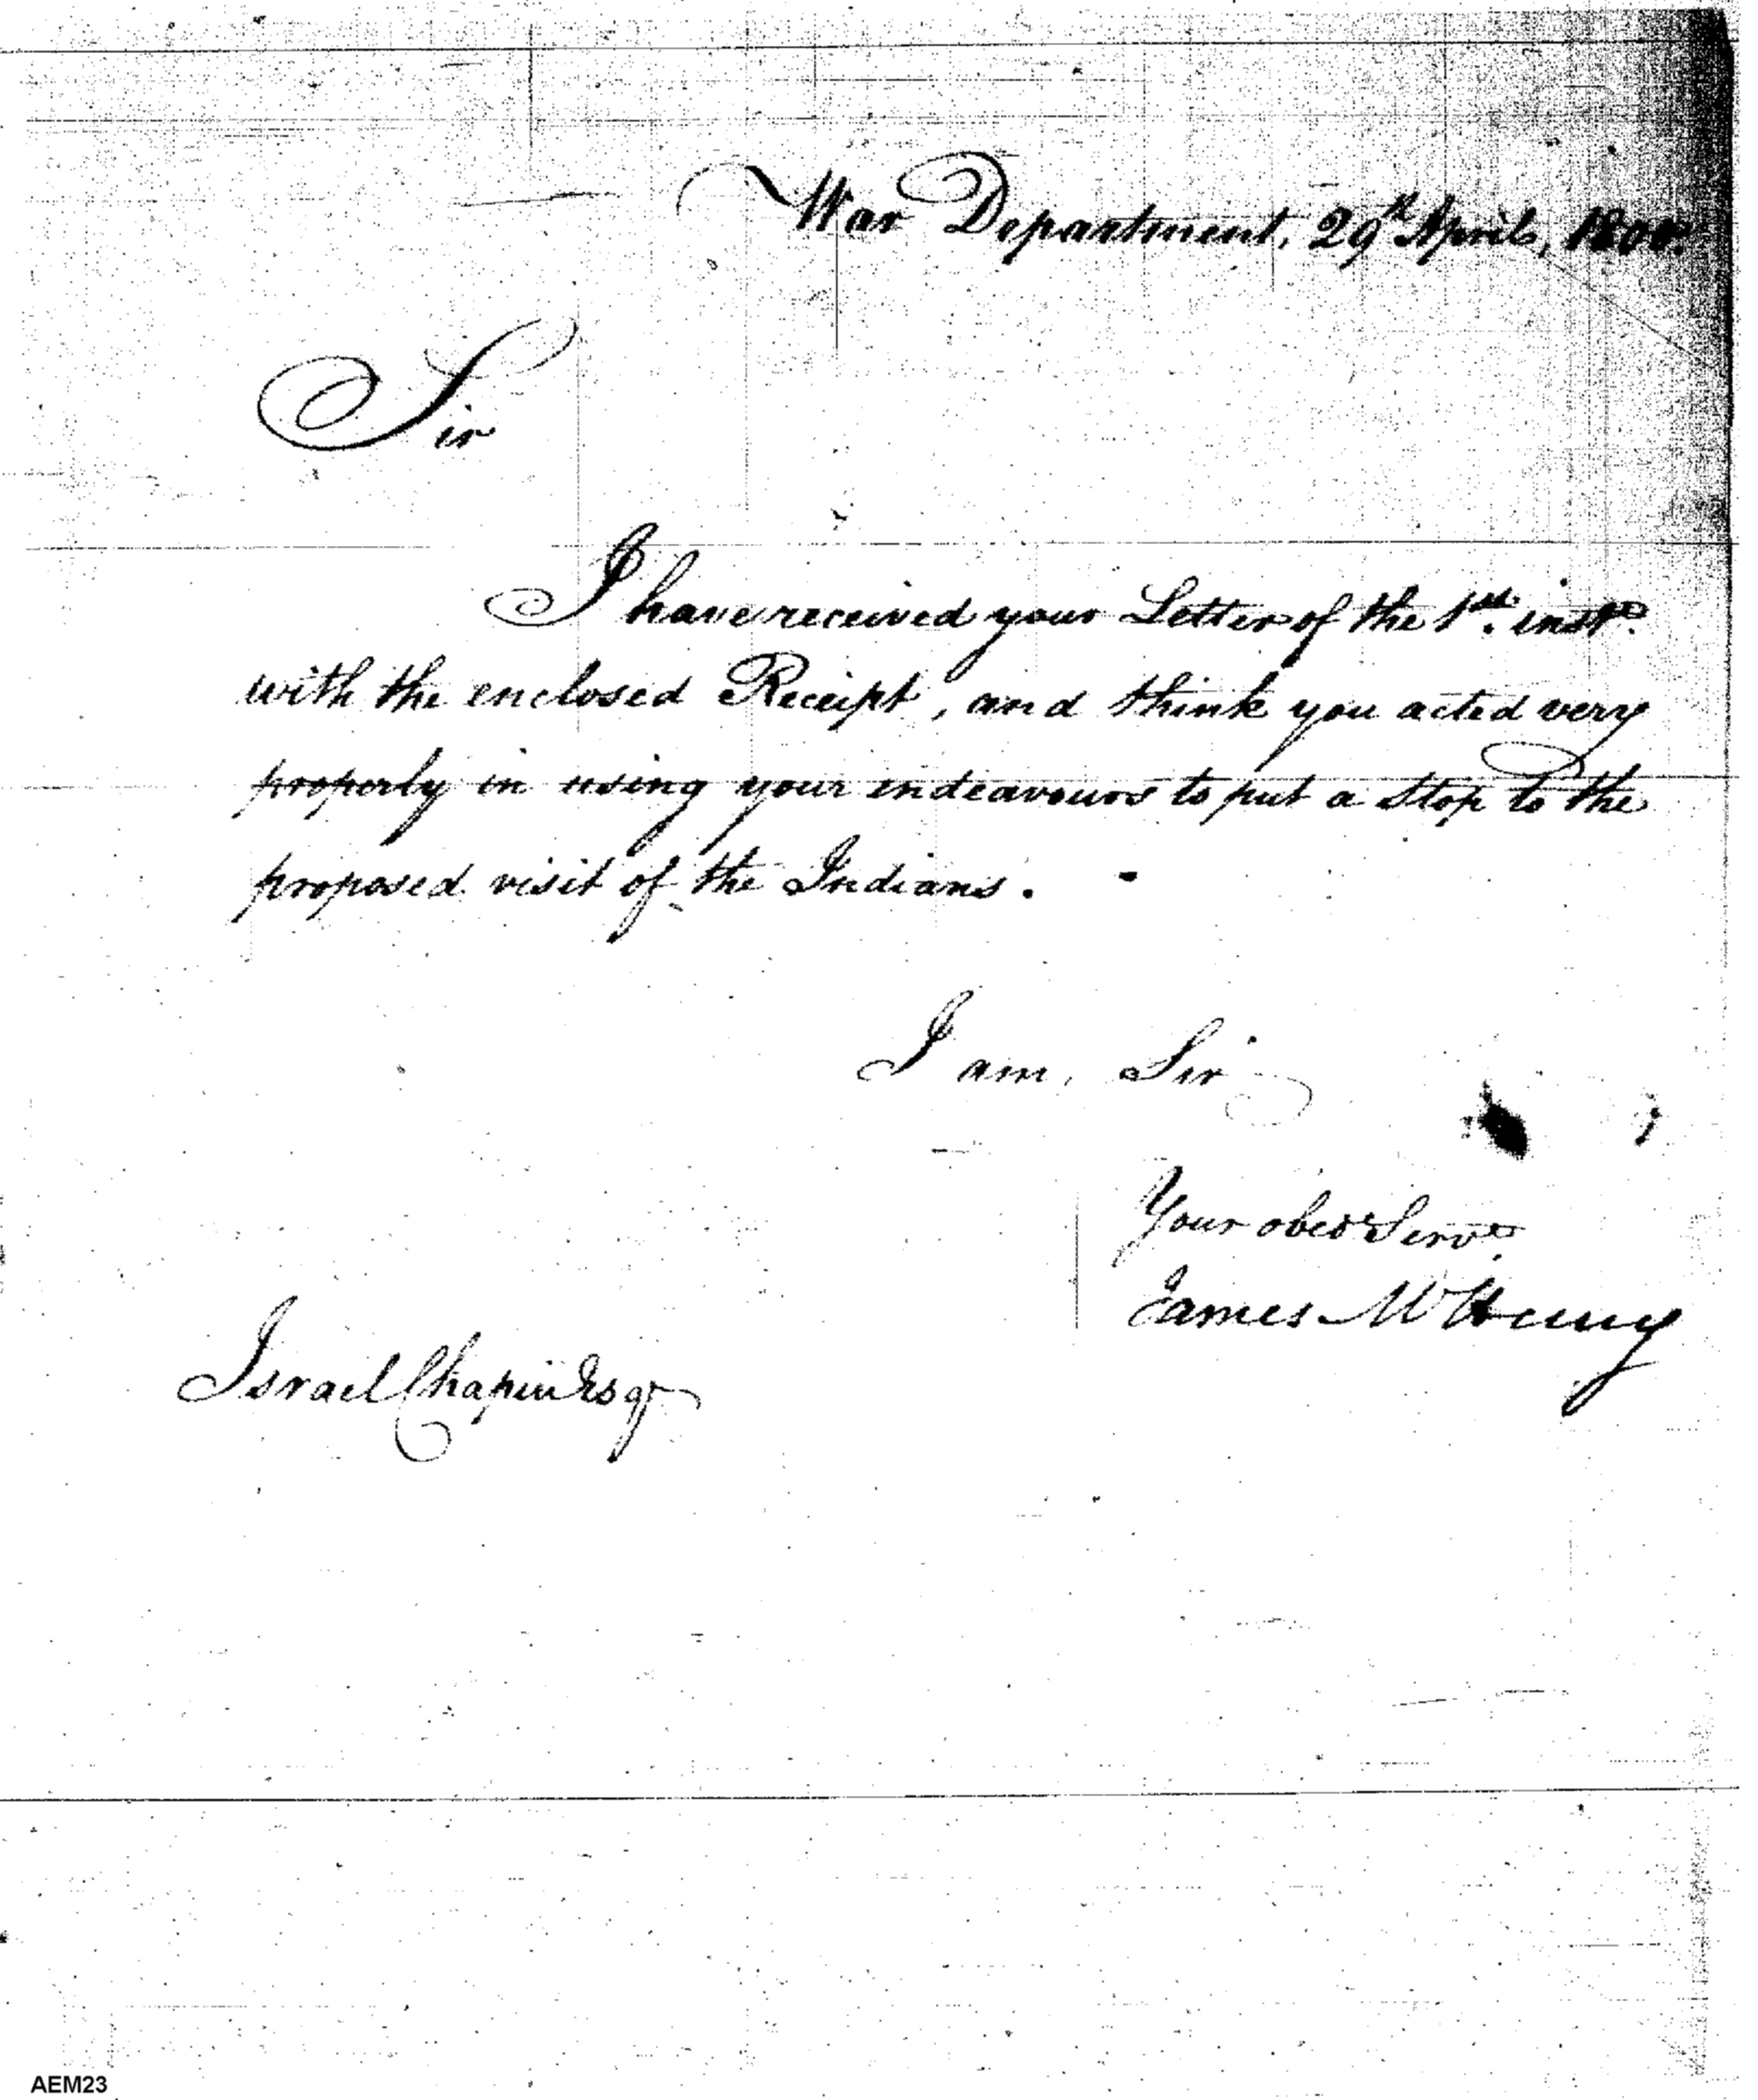 War Department, 29th April, 1800.
Sir
I have received your Letter of the 1st. inst.
with the enclosed Receipt, and think you acted very
properly in using your endeavours to put a stop to the
proposed visit of the Indians.
I am, Sir
Your obed Servt.
James McHenry
Israel Chapin Esqr
AEM23